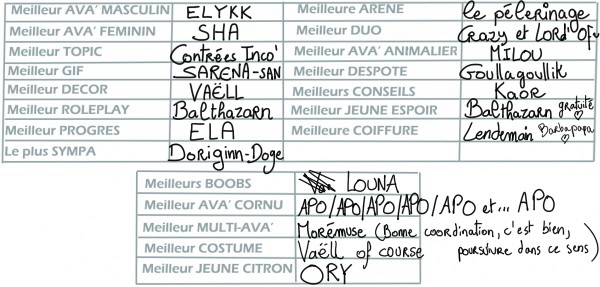 Meilleur AVA' MASCULIN ELYKK
Meilleur AVA' FEMININ SHA
Meilleur TOPIC Contrées Inco'
Meilleur GIF SARENA-SAN
Meilleur DECOR VAËLL
Meilleur ROLEPLAY Balthazarn
Meilleur PROGRES ELA
Le plus SYMPA Doriginn-Doge
Meilleure ARENE le pélerinage
Meilleur DUO Crazy et Lord'Of
Meilleur AVA' ANIMALIER MILOU
Meilleur DESPOTE Goullagoullik
Meilleurs CONSEILS Kaor
Meilleur JEUNE ESPOIR Balthazarn gratuité
Meilleure COIFFURE Lendemain Barbapapa
Meilleurs BOOBS LOUNA
Meilleur AVA' CORNU APO/APO/APO/APO/APO et... APO
Meilleur MULTI-AVA' Morémuse (Bonne coordination, c'est bien,
poursuivre dans ce sens)
Meilleur COSTUME Vaëll of course
Meilleur JEUNE CITRON ORY